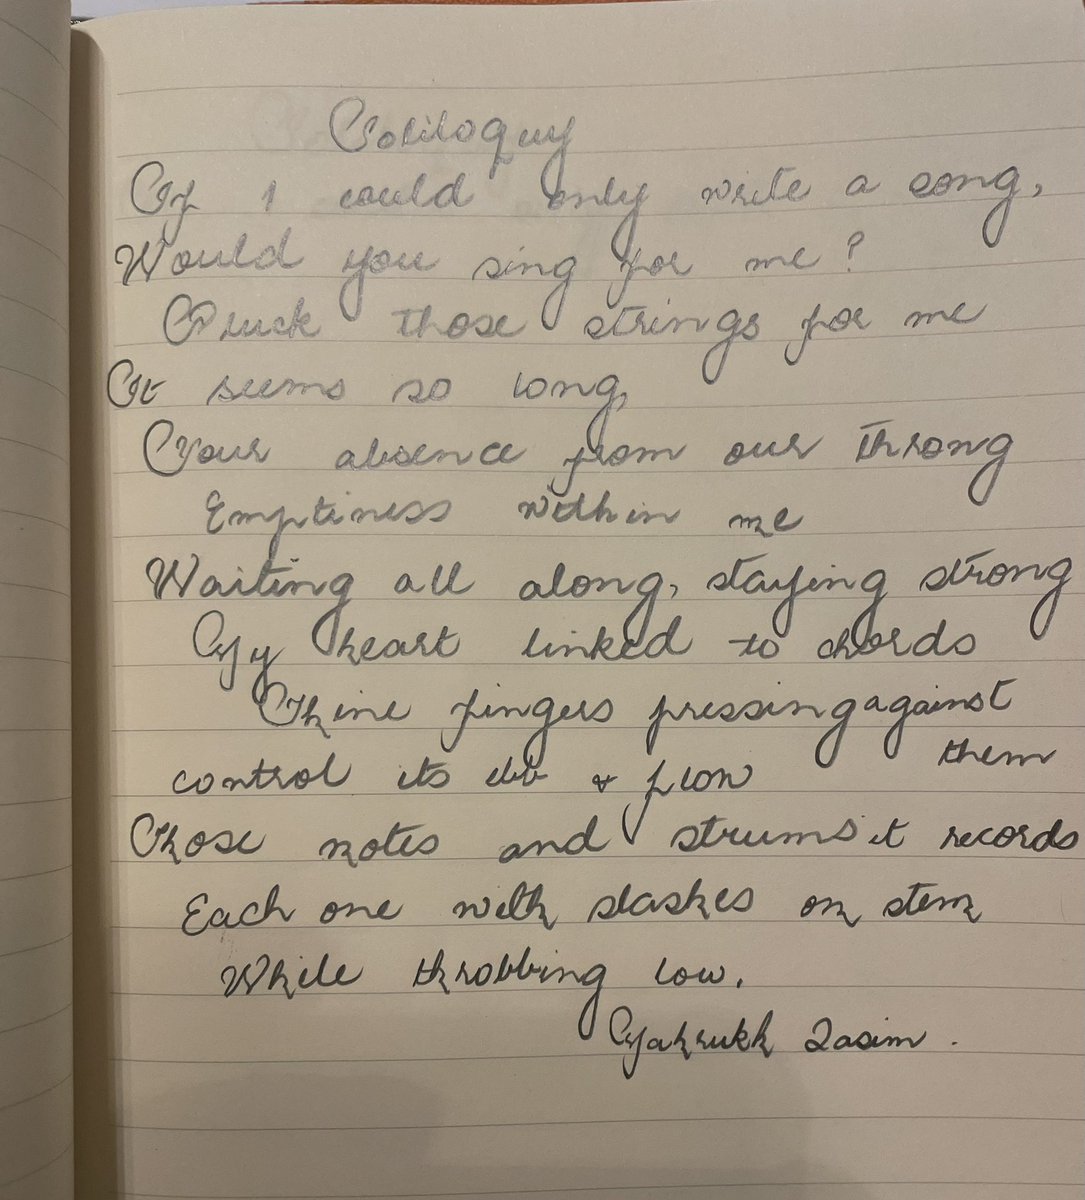 Soliloquy
If I could only write a song,
Would you sing for me?
Pluck those strings for me
It seems so long,
Your absence from our throng
Emptiness within me
Waiting all along, staying strong
My heart linked to chords
Thine fingers pressing against
them
control its ebb & flow
Those notes and strums it records
Each one with slashes on stem
While throbbing low.
Qasim.